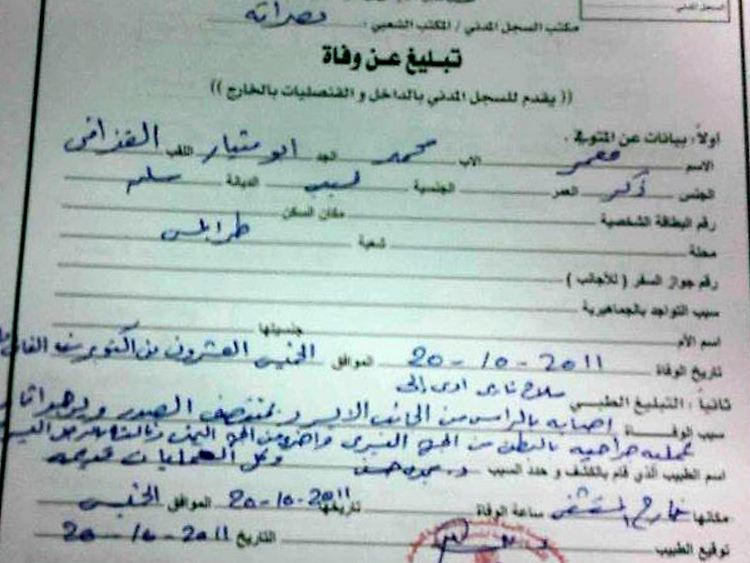 السجل المدني
مكتب السجل المدني / المكتب الشعبي : مصراته
تبليغ عن وفاة
(( يقدم للسجل المدني بالداخل و القنصليات بالخارج ))
أولاً : بيانات عن المتوفي .
الاسم معمر الاب محمد الجد ابو منيار اللقب القذافي
الجنس ذكر العمر الجنسية ليبي الديانة مسلم
رقم البطاقة الشخصية مكان السكن
محلة شعبية طرابلس
رقم جواز السفر ( للأجانب )
سبب التواجد بالجماهيرية
اسم الأم جنسيتها
تاريخ الوفاة 2011-10-20 الموافق الخميس العشرون من اكتوبر
ثانياً : التبليغ الطبي سلاح ناري ادى إلى
سبب الوفاة اصابه بالراس من الجانب الايسر و بمنتصف الصدر
عمليه جراحيه بالبطن من الجهة اليسرى واخرى من الجهة اليمنى
اسم الطبيب الذي قام بالكشف و حدد السبب وكل العمليات قديمه
مكانها خارج المستشفى ساعة الوفاة تاريخها 2011-10-20 الموافق الخميس
توقيع الطبيب التاريخ 2011-10-20